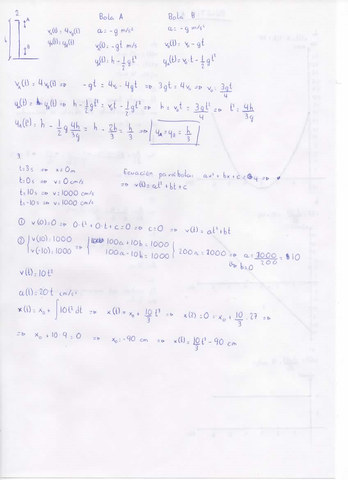 2.
A
h
B
v_A(t) = 4v_B(t)
y_A(t) = y_B(t)
Bola A
a = -g m/s²
v_A(t) = -gt m/s
y_A(t) = h - 1/2 gt²
Bola B
a = -g m/s²
v_B(t) = v₀ - gt
y_B(t) = v₀t - 1/2 gt²
v_A(t) = 4v_B(t) ⇒ -gt = 4v₀ - 4gt ⇒ 3gt = 4v₀ ⇒ v₀ = 3gt/4
y_A(t) = y_B(t) ⇒ h - 1/2 gt² = v₀t - 1/2 gt² ⇒ h = v₀t = 3gt²/4 ⇒ t² = 4h/3g
y_A(t²) = h - 1/2 g 4h/3g = h - 2h/3 = h/3 ⇒ y_A = y_B = h/3
3.
t = 3s ⇒ x = 0 m
t = 0s ⇒ v = 0 cm/s
t = 10s ⇒ v = 1000 cm/s
t = -10s ⇒ v = 1000 cm/s
Ecuación parábola: ax² + bx + c = y ⇒
⇒ v(t) = at² + bt + c
① v(0) = 0 ⇒ 0·t² + 0·t + c = 0 ⇒ c = 0 ⇒ v(t) = at² + bt
② { v(10) = 1000 v(-10) = 1000 ⇒ { 100a + 10b = 1000 100a - 10b = 1000 } 200a = 2000 ⇒ a = 2000/200 = 10
⇒ b = 0
v(t) = 10t²
a(t) = 20t cm/s²
x(t) = x₀ + ∫ 10t² dt ⇒ x(t) = x₀ + 10/3 t³ ⇒ x(t) = 0 = x₀ + 10/3 · 27 ⇒
⇒ x₀ + 10·9 = 0 ⇒ x₀ = -90 cm ⇒ x(t) = 10/3 t³ - 90 cm